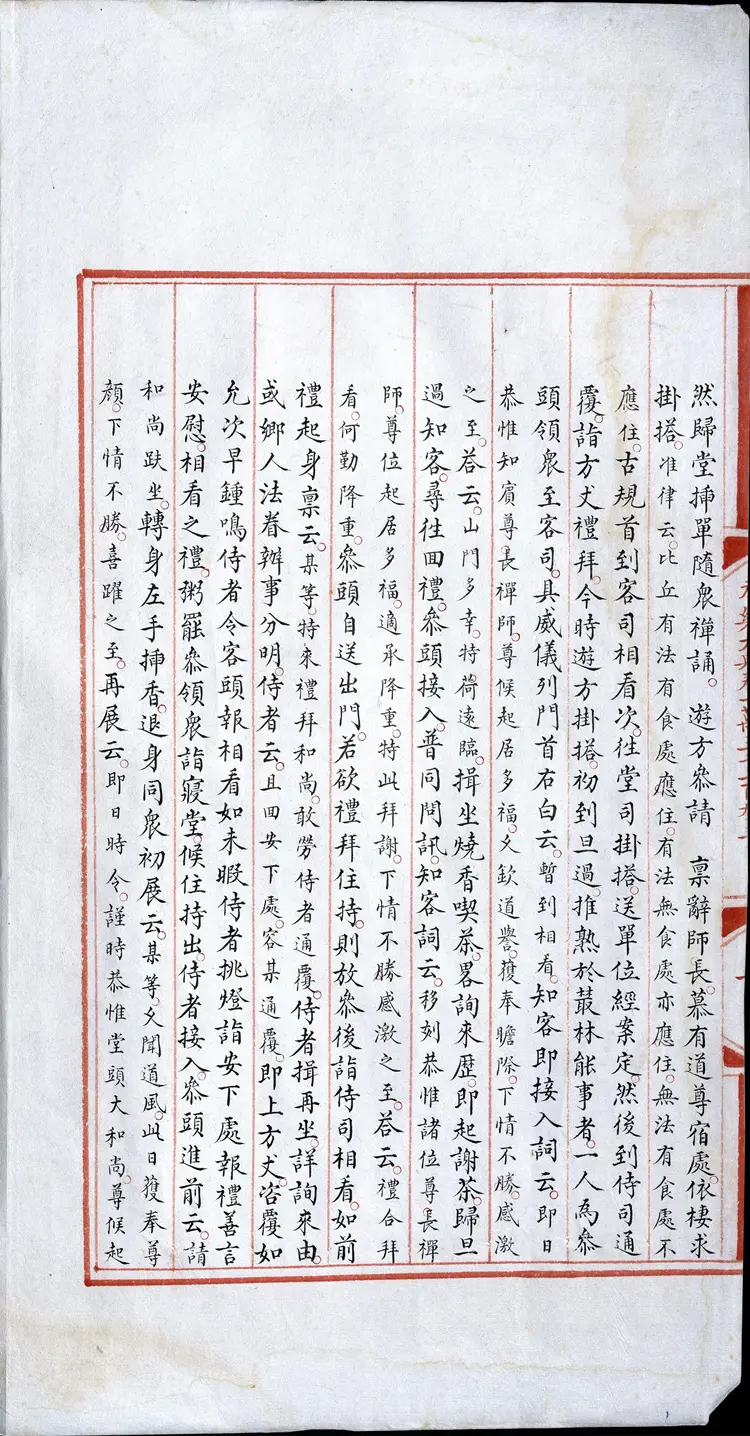 然歸堂揷單隨衆禪誦。遊方叅請　禀辭師長。慕有道尊宿處。依棲求
掛搭。准律云。比丘有法有食處應住。有法無食處亦應住。無法有食處不
應住。古規首到客司相看。次徃堂司掛搭。送單位經案定。然後到侍司通
覆。詣方丈禮拜。今時遊方掛搭。初到旦過。推熟於叢林能事者。一人為叅
頭領衆至客司。具威儀列門首右白云。暫到相看。知客即接入詞云。即日
恭惟知賓尊長禪師。尊候起居多福。久欽道譽。獲奉瞻際。下情不勝感激
之至。荅云。山門多幸。特荷遠臨。揖坐燒香喫茶。畧詢來歷。即起謝茶。歸旦
過。知客尋徃回禮。叅頭接入。普同問訊。知客詞云。移刻恭惟諸位尊長禪
師。尊位起居多福。適承降重。特此拜謝。下情不勝感激之至。荅云。禮合拜
看。何勤降重。叅頭自送出門。若欲禮拜住持。則放叅後詣侍司相看。如前
禮起身禀云。某等特來禮拜和尚。敢勞侍者通覆。侍者揖再坐。詳詢來由。
或鄉人法眷辦事分明。侍者云。且回安下處。容某通覆。即上方丈咨覆。如
允次早鍾鳴。侍者令客頭報相看。如未暇侍者挑燈詣安下處報禮善言
安慰。相看之禮。粥罷叅領衆詣寢堂。候住持出。侍者接入。叅頭進前云。請
和尚趺坐。轉身左手揷香。退身同衆初展云。某等久聞道風。此日獲奉尊
顔。下情不勝。喜躍之至。再展云。即日時令。謹時恭惟堂頭大和尚。尊候起